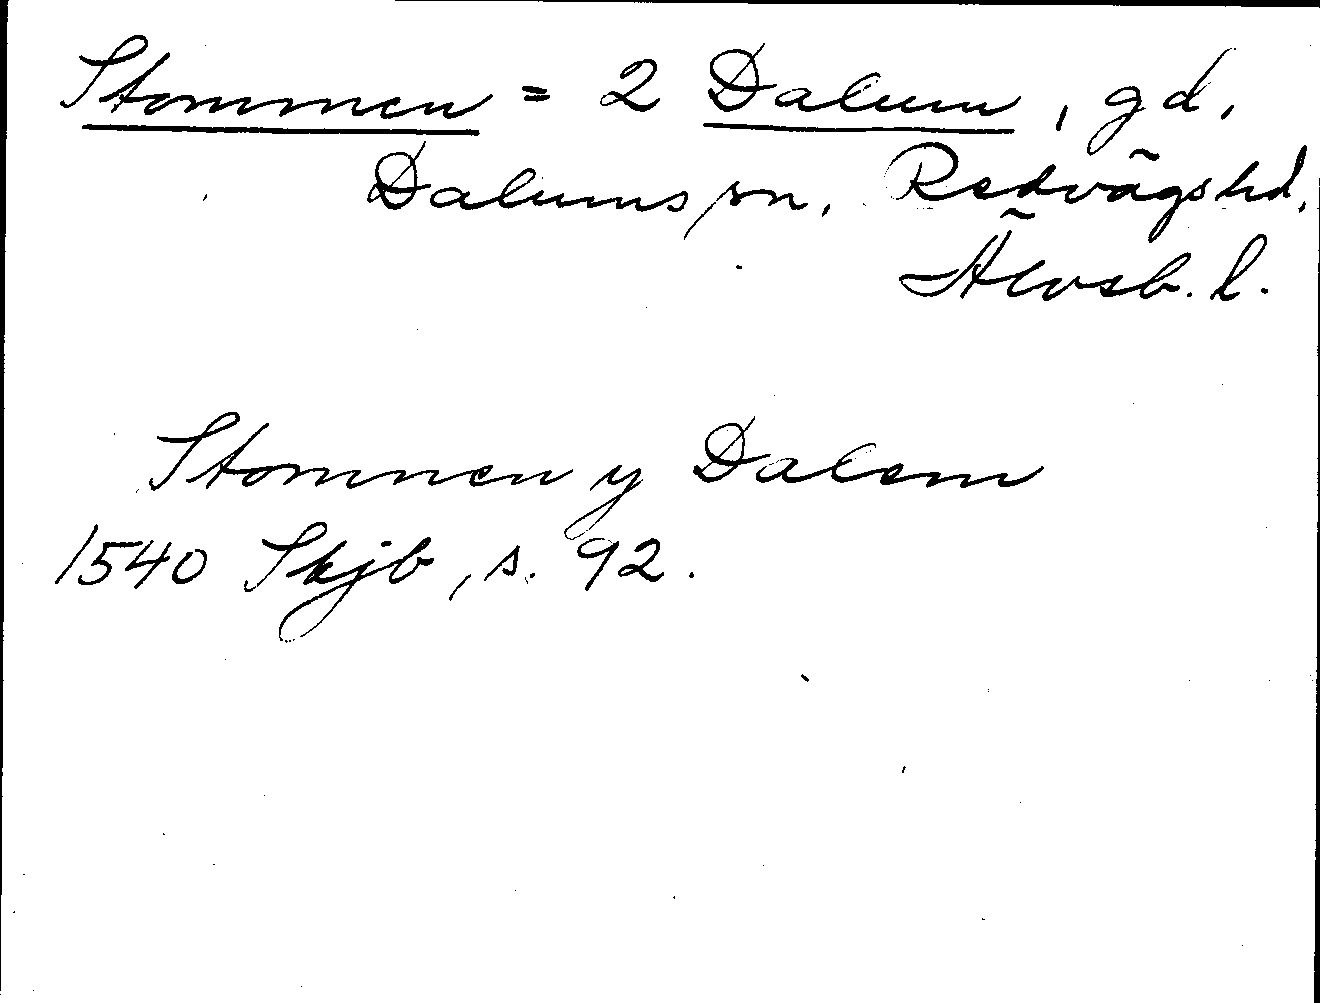 Stommen = 2 Dalum, gd,
Dalums sn, Redvägs hd,
Älvsb. l.
Stommen y Dalem
1540 Skjb, s. 92.